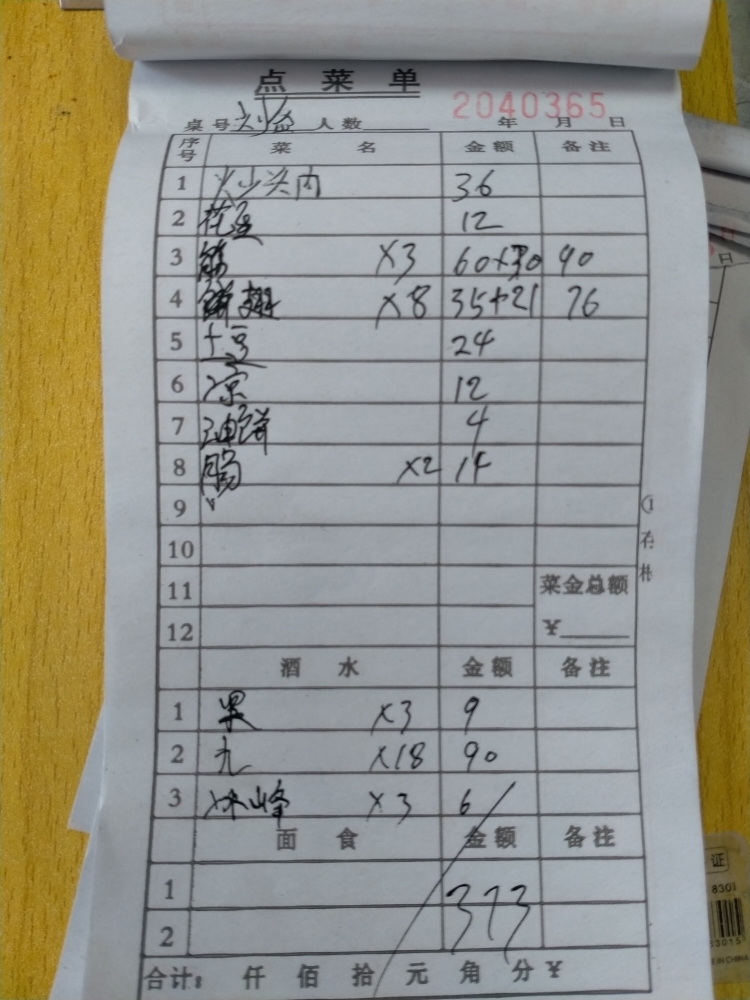 点菜单
2040365
桌号 人数 年 月 日
序号 菜名 金额 备注
1 火少头肉 36
2 花 12
3 筋 ×3 60+30 90
4 翅 ×8 35+21 76
5 土豆 24
6 凉 12
7 油饼 4
8 肠 ×2 14
9
10
11 菜金总额
12 ¥
酒水 金额 备注
1 果 ×3 9
2 九 ×18 90
3 冰峰 ×3 6
面食 金额 备注
1 373
2
合计: 仟 佰 拾 元 角 分 ¥
证
8301